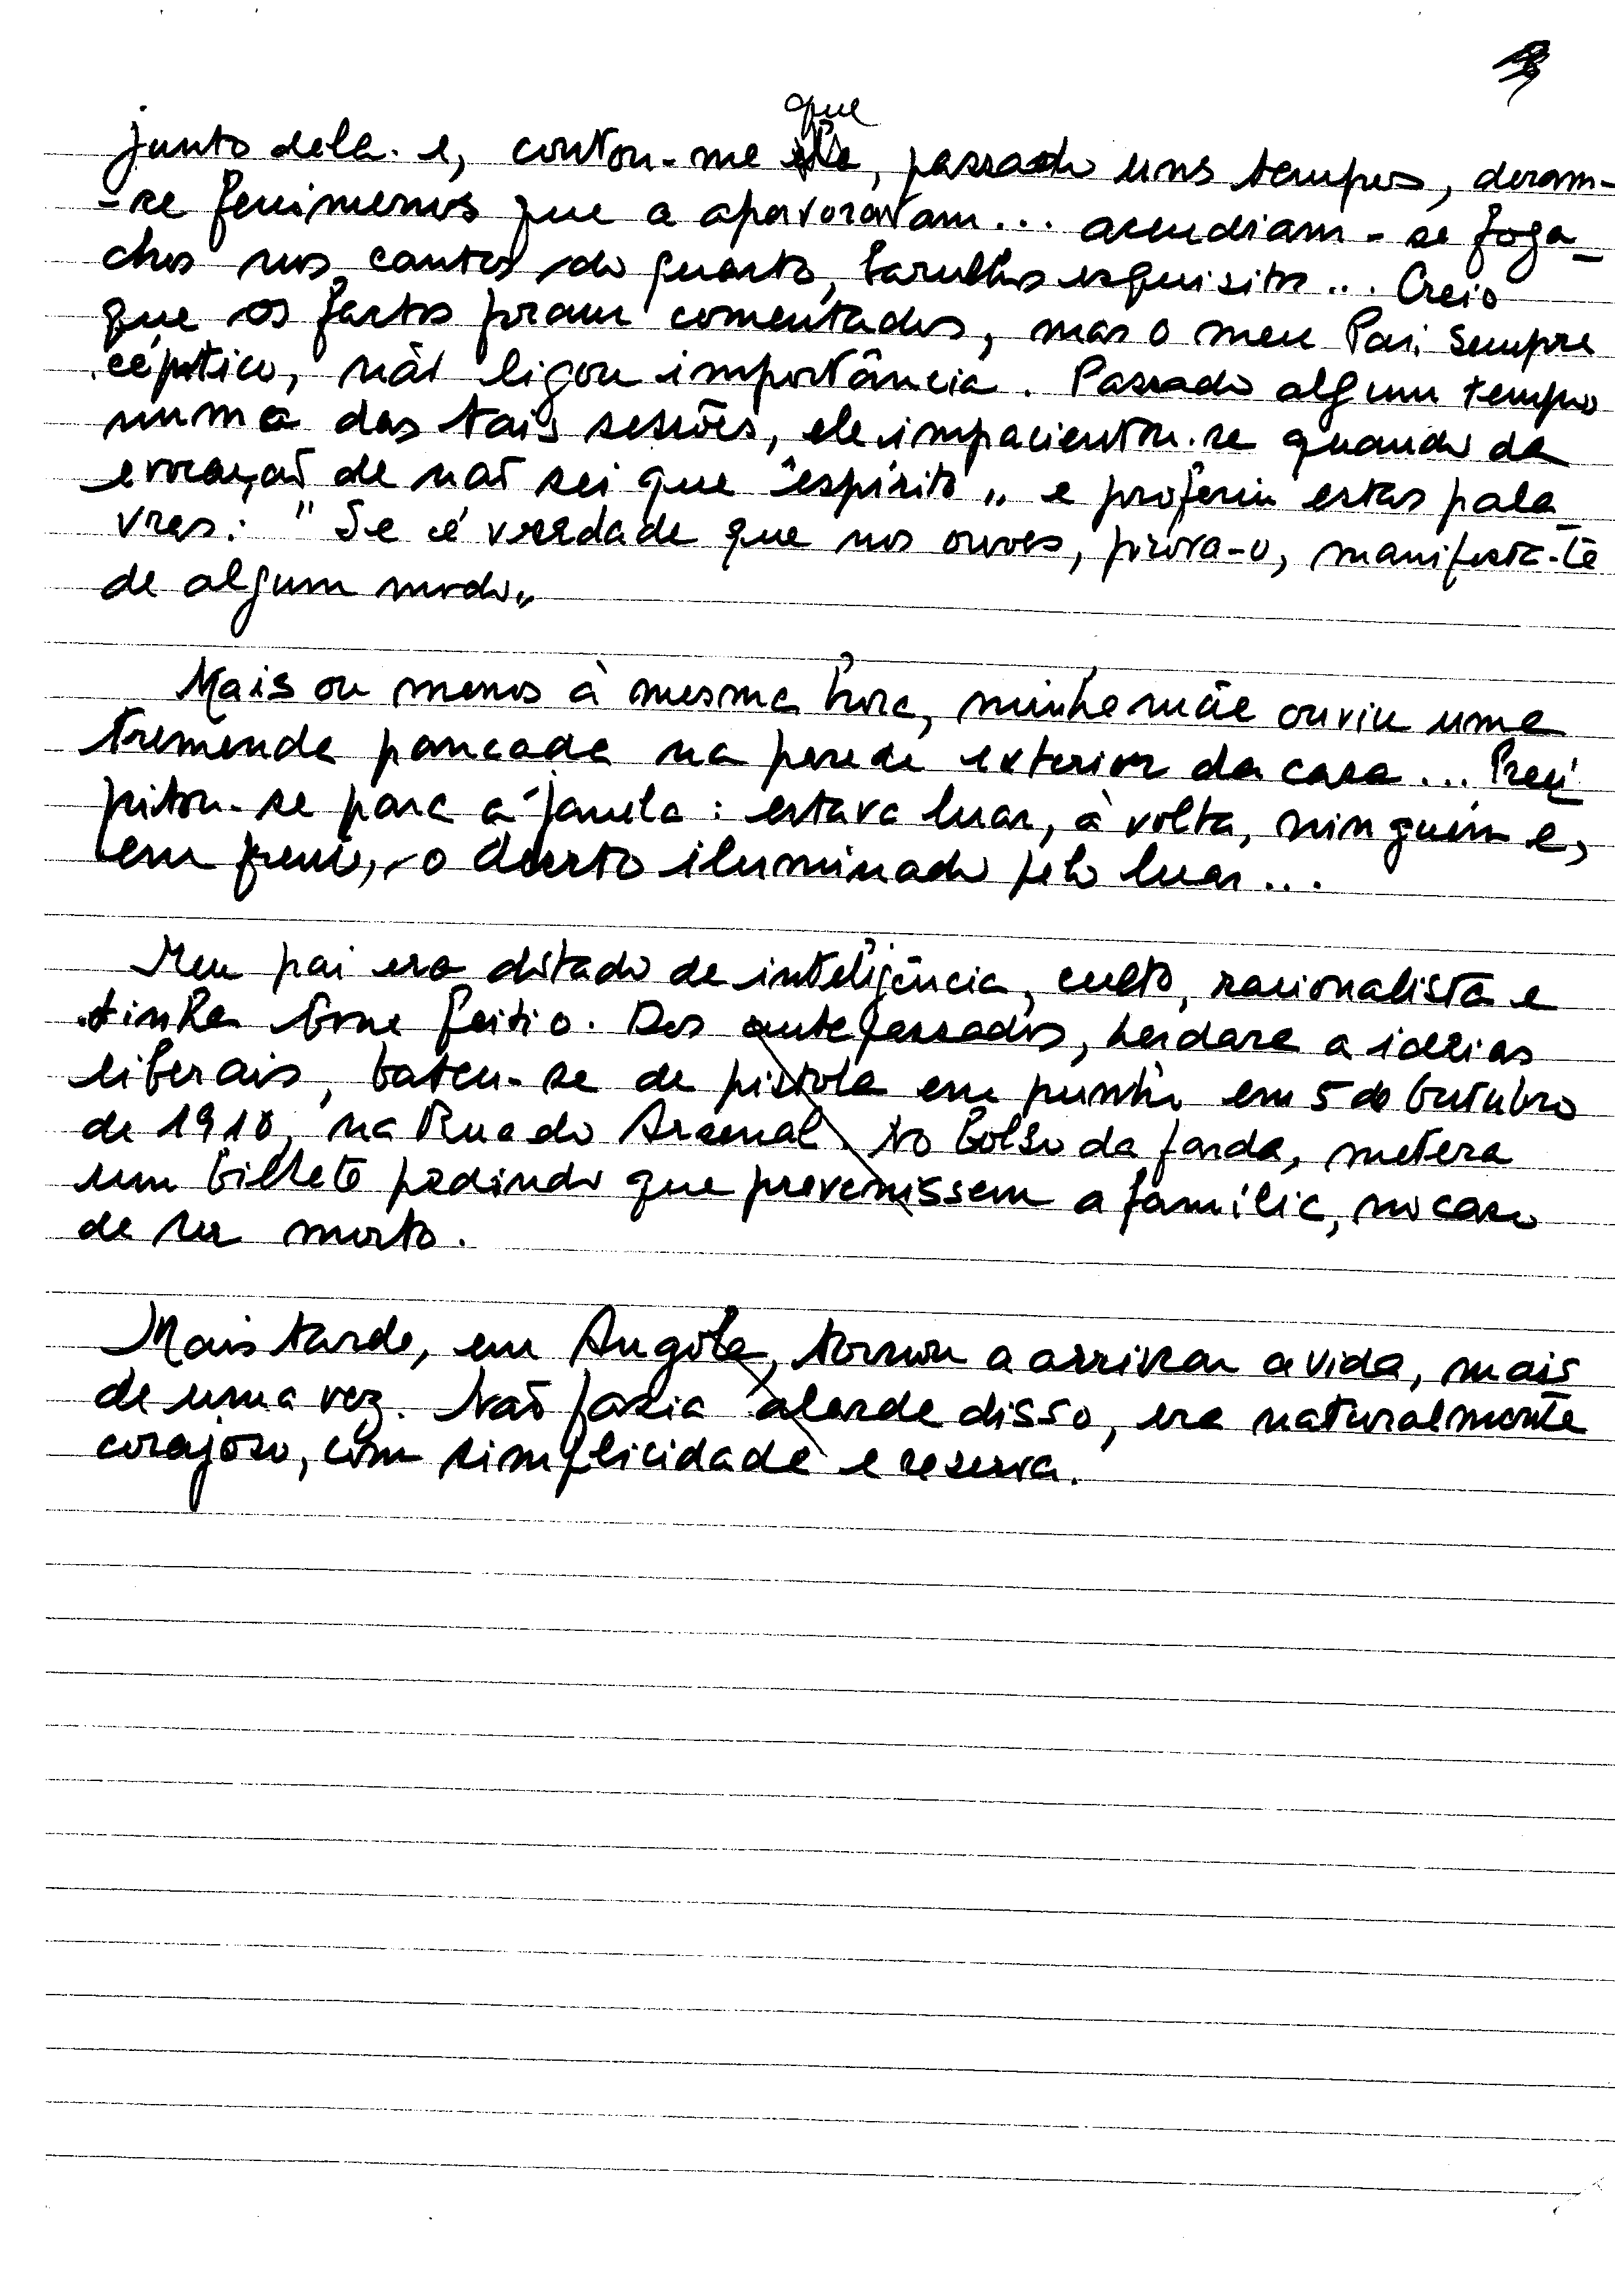 que
junto dela. e, contou-me, passado uns tempos, deram-
-se fenómenos que a apavoravam... acendiam-se foga-
chos nos cantos do quarto, barulhos esquisitos... Creio
que os factos foram comentados, mas o meu Pai, sempre
céptico, não ligou importância. Passado algum tempo
numa das tais sessões, ele impacientou-se quando da
evocação de não sei que "espírito„ e proferiu estas pala-
vras: "Se é verdade que nos ouves, prova-o, manifesta-te
de algum modo„
Mais ou menos à mesma hora, minha mãe ouviu uma
tremenda pancada na parede exterior da casa... Preci
pitou-se para a janela: estava luar, à volta, ninguém e,
em frente, o deserto iluminado pelo luar...
Meu pai era dotado de inteligência, culto, racionalista e
tinha bom feitio. Dos antepassados, herdara a ideias
liberais, bateu-se de pistola em punho em 5 de Outubro
de 1910, na Rua do Arsenal. No bolso da farda, metera
um bilhete pedindo que prevenissem a família, no caso
de ser morto.
Mais tarde, em Angola, tornou a arriscar a vida, mais
de uma vez. Não fazia alarde disso, era naturalmente
corajoso, com simplicidade e reserva.